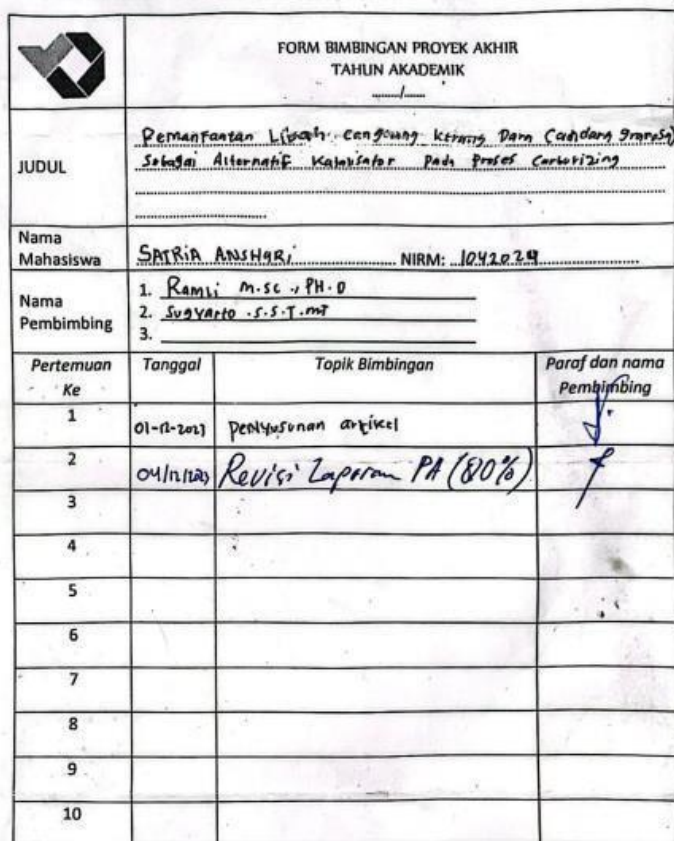 FORM BIMBINGAN PROYEK AKHIR
TAHUN AKADEMIK
......../........
JUDUL
Pemanfaatan Limbah Cangkang Kerang Dara (anadara granosa)
Sebagai Alternatif Katalisator Pada Proses Carburizing
Nama Mahasiswa
SATRIA ANSHARI NIRM: 1042024
Nama Pembimbing
1. Ramli M.Sc., PH.D
2. Sugyarto .S.S.T.MT
3.
Pertemuan Ke Tanggal Topik Bimbingan Paraf dan nama Pembimbing
1 01-12-2023 Penyusunan artikel
2 04/12/2023 Revisi Laporan PA (80%)
3
4
5
6
7
8
9
10